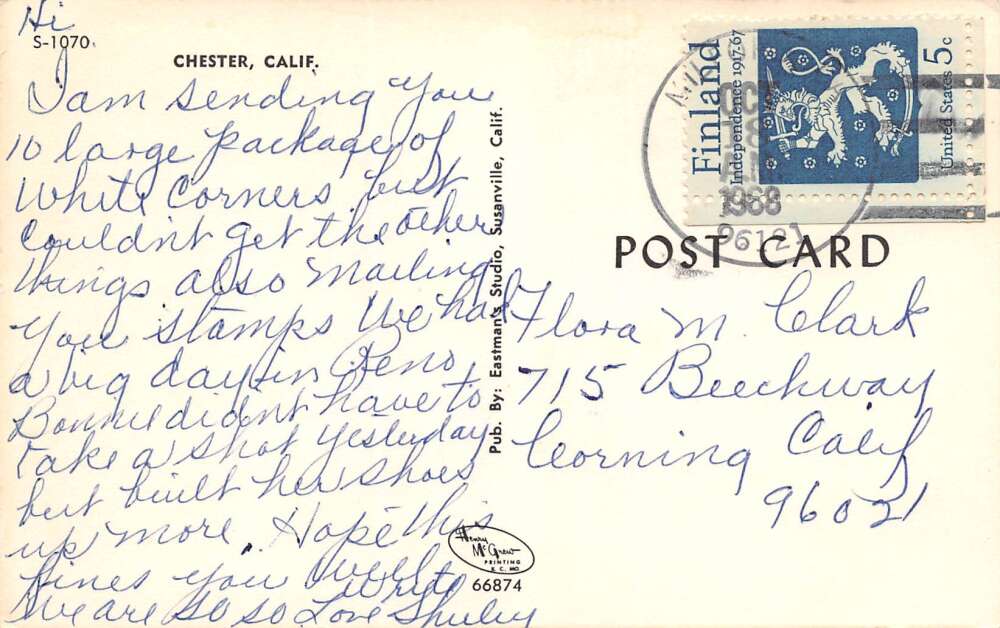 Hi
S-1070
CHESTER, CALIF.
I am sending you
10 large package of
White Corners but
couldn't get the other
things also mailing
you stamps We had
a big day in Reno
Bonnie didn't have to
take a shot yesterday
but built her shoes
up more. Hope this
fines you well
write
We are so so Love Shirley
Pub. By: Eastman's Studio, Susanville, Calif.
Henry
McGrew
PRINTING
K. C. MO
66874
Finland
Independence 1917-67
United States 5c
1968
96121
POST CARD
Flora M. Clark
715 Beechway
Corning Calif
96021